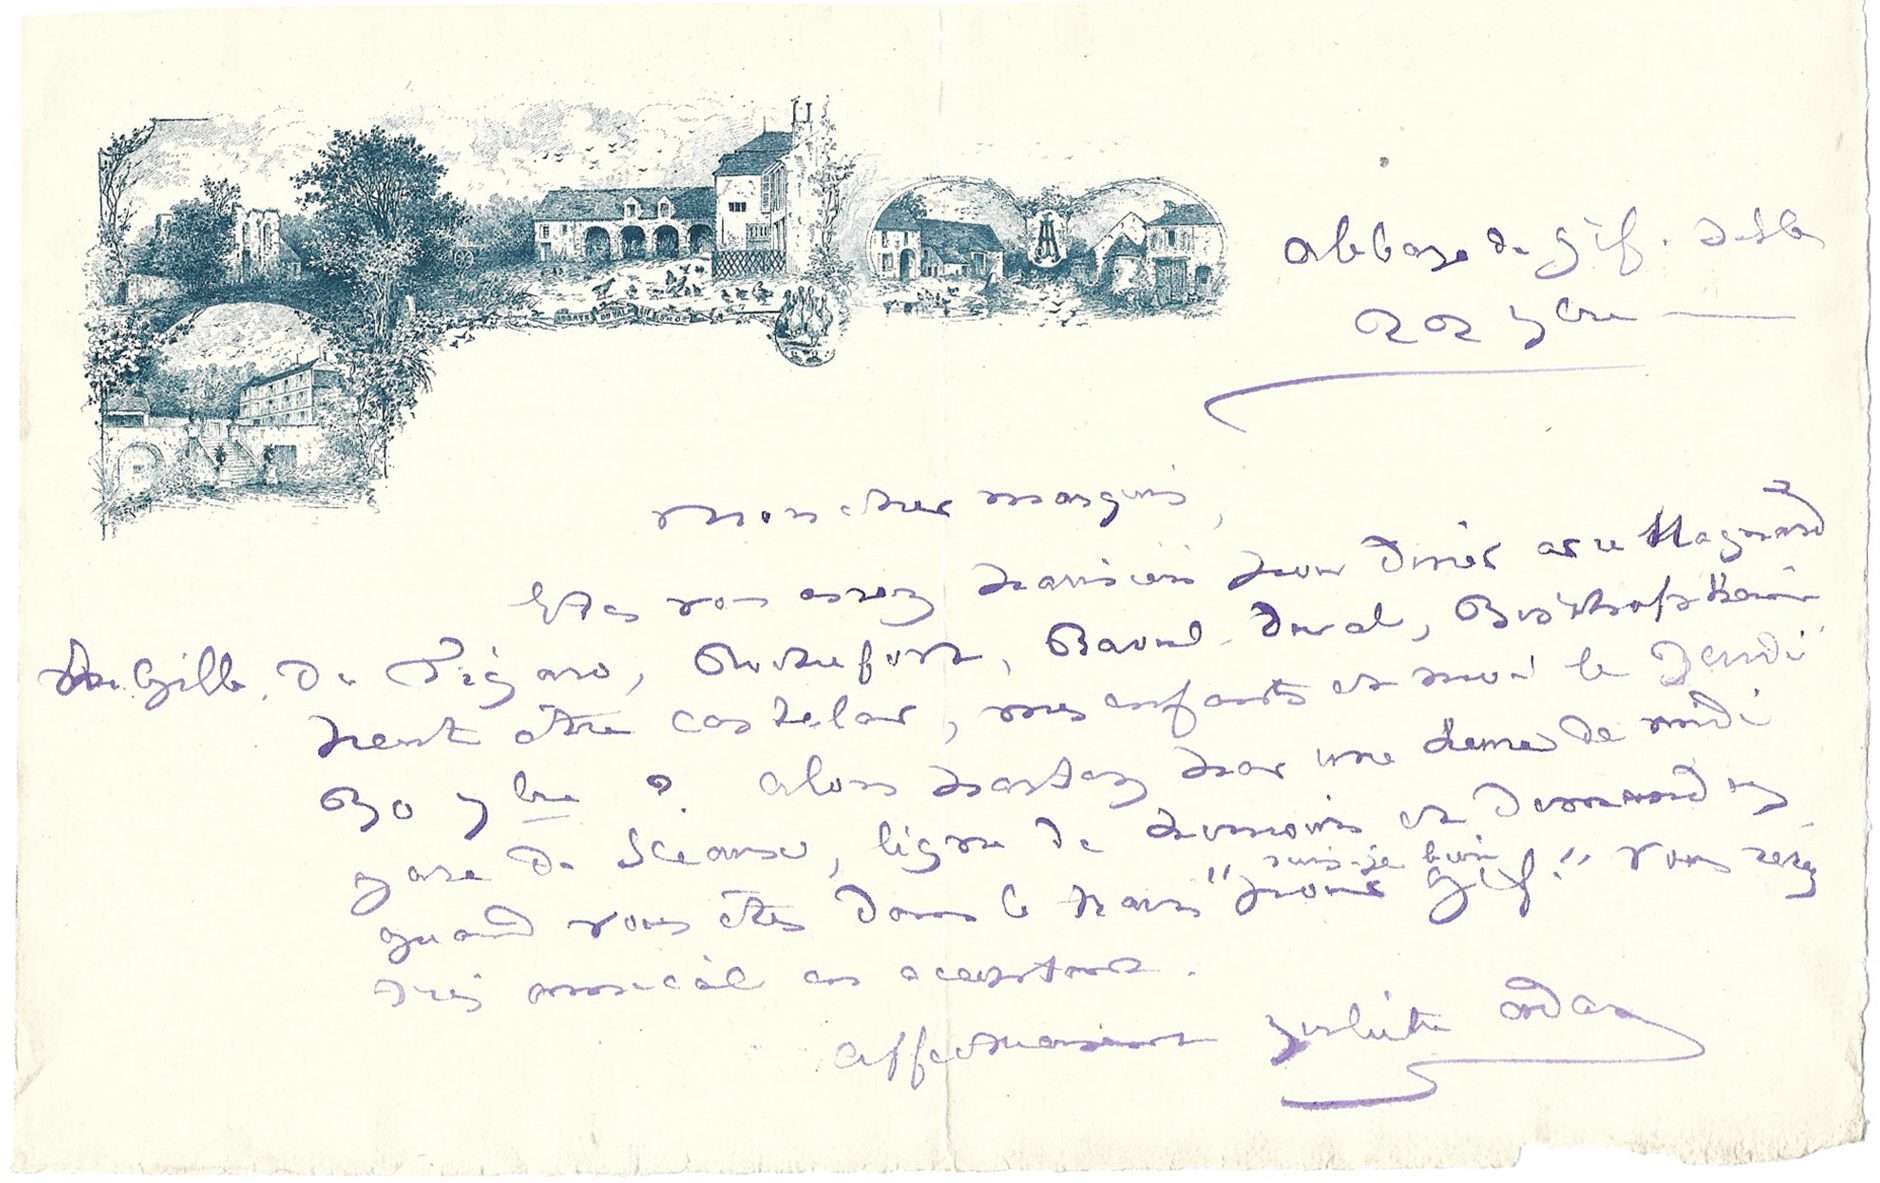 ABBAYE DU VAL DE GIF
Abbaye de Gif. S. & O.
22 7bre
Mon cher Marquis,
Etes vous assez parisien pour diner avec Magnard
Ph. Gille, du Figaro, Rochefort, Raoul-Duval, Bischoffsheim
peut être Castelar, mes enfants et moi le Jeudi
30 7bre ? Alors partez par une heure de midi
gare de Sceaux, ligne de Limours et demandez
quand vous êtes dans le train "suis-je bien pour Gif." Vous serez
très amical en acceptant.
Affectueusement Juliette Adam